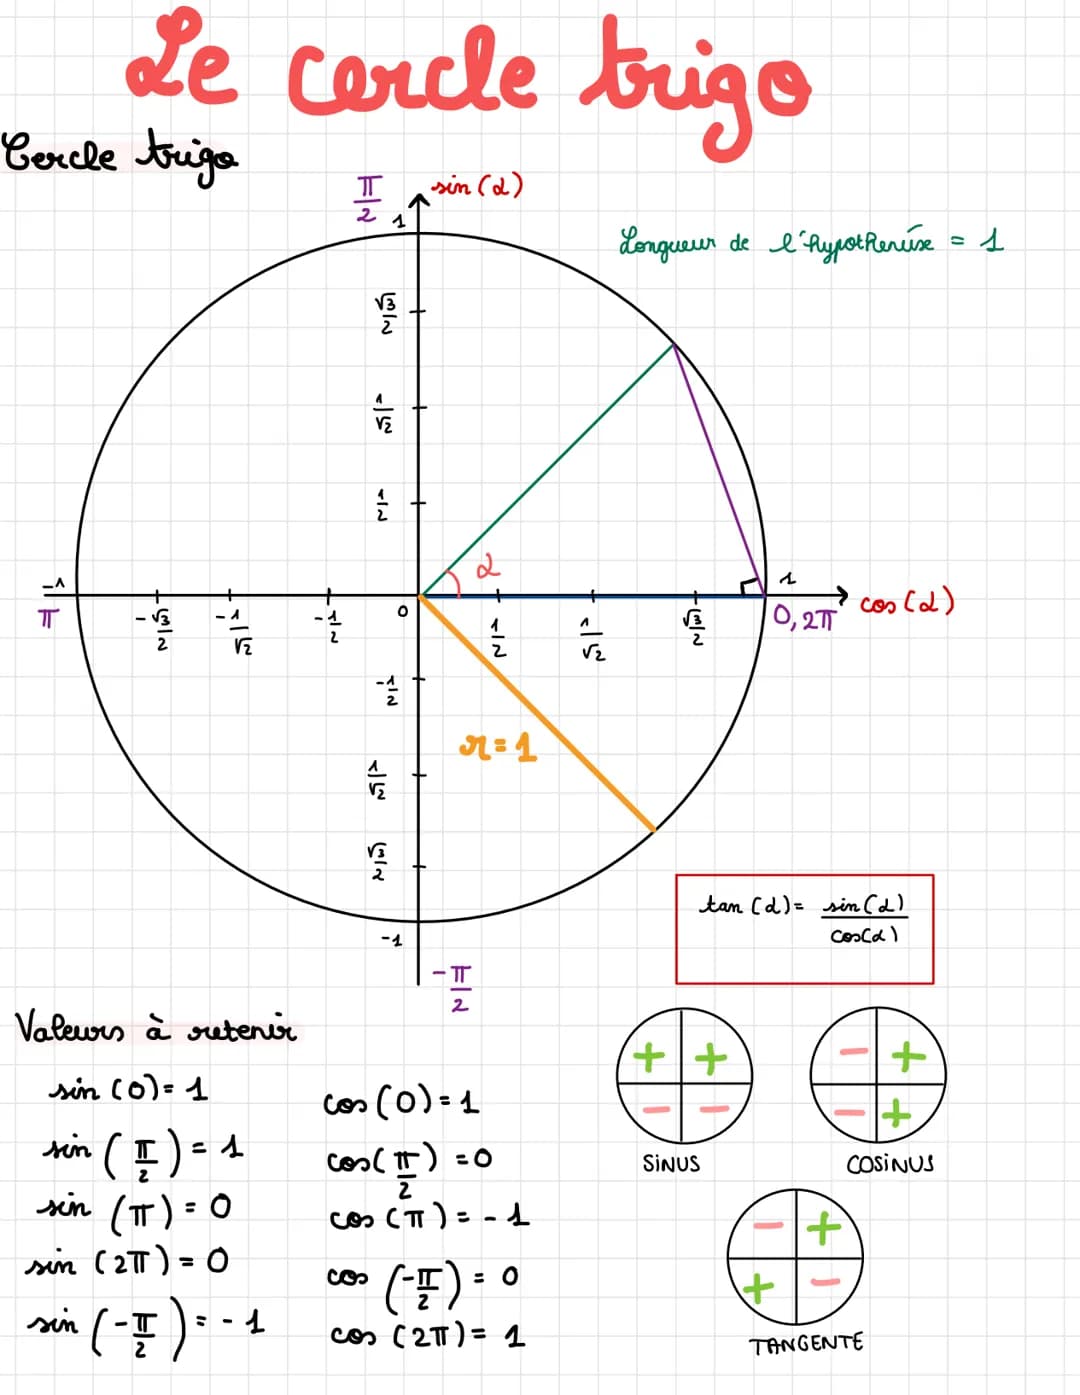 Le cercle trigo
Cercle trigo
π/2
sin(α)
1
Longueur de l'hypothenúse = 1
√3/2
1/√2
1/2
α
-1
1
π
-√3/2
-1/√2
-1/2
0
1/2
1/√2
√3/2
0, 2π
cos(α)
-1/2
r = 1
1/√2
√3/2
-1
-π/2
tan(α) = sin(α)/cos(α)
Valeurs à retenir
sin(0) = 1
sin(π/2) = 1
sin(π) = 0
sin(2π) = 0
sin(-π/2) = -1
cos(0) = 1
cos(π/2) = 0
cos(π) = -1
cos(-π/2) = 0
cos(2π) = 1
+ +
- -
SINUS
- +
- +
COSINUS
- +
+ -
TANGENTE